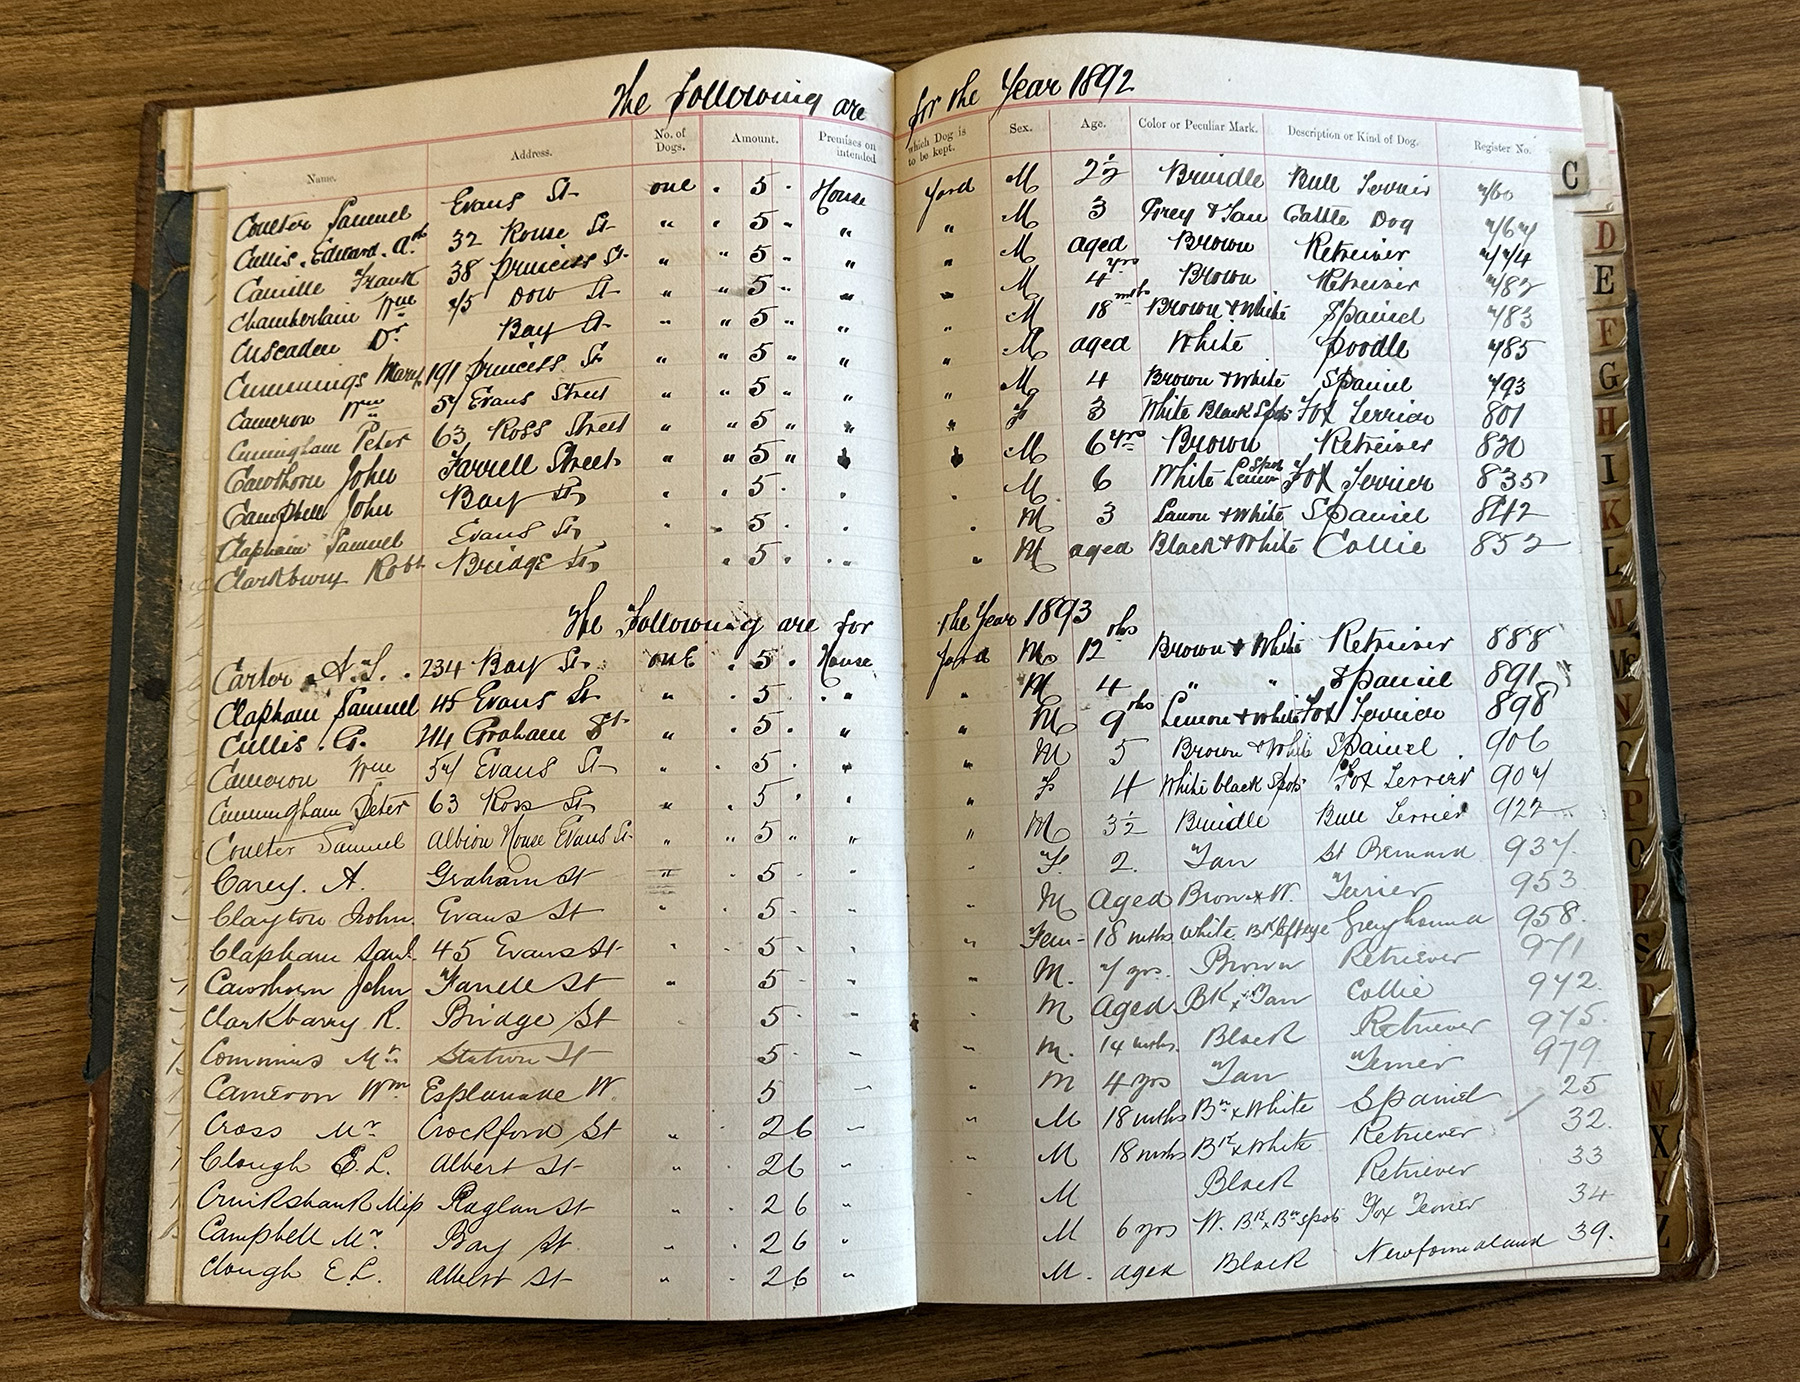 The Following are for the Year 1892
Name. Address. No. of Dogs. Amount. Premises on intended which Dog is to be kept. Sex. Age. Color or Peculiar Mark. Description or Kind of Dog. Register No.
Coulter Samuel Evans St one 5 House Yard M 2½ Brindle Bull Terrier 760 C
Cullis Edward 32 Rouse St " " 5 " " " M 3 Grey & Tan Cattle Dog 767 D
Camille Frank 38 Princess St " " 5 " " " M aged Brown Retreiver 774
Chamberlain Wm 75 Dow St " " 5 " " " M 4 yrs Brown Retreiver 782 E
Cuscaden Dr Bay St " " 5 " " " M 18 mths Brown & White Spaniel 783 F
Cummings Mary 191 Princess St " " 5 " " " M aged White Poodle 785
Cameron Wm 57 Evans Street " " 5 " " " M 4 Brown & White Spaniel 793 G
Cuningham Peter 63 Ross Street " " 5 " " " F 3 White Black Spots Fox Terrier 801 H
Cawthorn John Farrell Street " " 5 " " " M 6 yrs Brown Retreiver 830
Campbell John Bay St " 5 " " M 6 White Lemon Spots Fox Terrier 835 I
Clapham Samuel Evans St " 5 " " M 3 Lemon & White Spaniel 842 K
Clarkbury Robt Bridge St " 5 " " M aged Black & White Collie 852 L
The Following are for the Year 1893 M
Carter A. S. 234 Bay St one 5 House Yard M 12 mhs Brown & White Retreiver 888 Mc
Clapham Samuel 45 Evans St " 5 " " M 4 " " Spaniel 891
Cullis G. 214 Graham St " 5 " " M 9 mhs Lemon & White Fox Terrier 898 N
Cameron Wm 57 Evans St " 5 " " M 5 Brown & White Spaniel 906 O
Cunningham Peter 63 Ross St " 5 " " F 4 White black Spots Fox Terrier 907 P
Coulter Samuel Albion House Evans St " " 5 " " " M 3½ Brindle Bull Terrier 922
Carey. A. Graham St " 5 " " F. 2. Tan St Bernard 937. Q
Clayton John. Evans St " 5 " " M Aged Brown & W. Terrier 953 R
Clapham Saml. 45 Evans St " 5 " " Fem- 18 mths white. Bk left eye Greyhound 958. S
Cawthorn John Farrell St " 5 " " M. 7 yrs. Brown Retriever 971
Clarkbarry R. Bridge St 5 " " M Aged BK & Tan Collie 972. T
Commins Mr. Station St 5 " " M. 14 mths. Black Retriever 975.
Cameron Wm Esplanade W. 5 " " M 4 yrs Tan Terrier 979
Cross Mr Crockford St " 2 6 " M 18 mths Bn & White Spaniel 25
Clough E. L. Albert St " 2 6 " M 18 mths Bk & White Retriever 32. X
Cruikshank Miss Raglan St " 2 6 " M Black Retriever 33 Y
Campbell Mr. Bay St " 2 6 " M 6 yrs W. Bk & Bn spots Fox Terrier 34 Z
Clough E L. Albert St " 2 6 " M. aged Black Newfoundland 39.